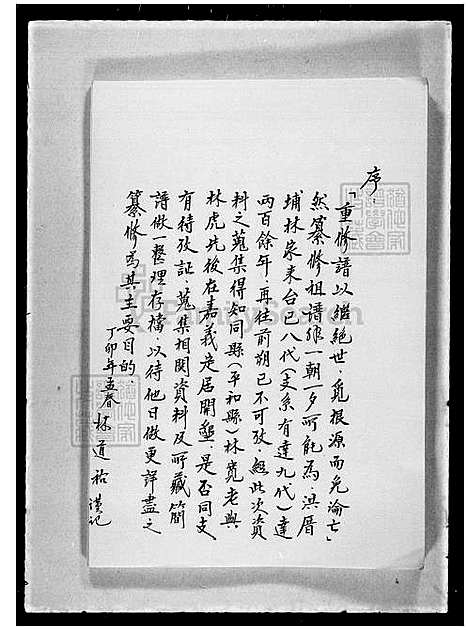 序：
「重修譜以繼絕世，覓根源而免淪亡」
然纂修祖譜非一朝一夕所能為，洪厝
埔林家來台已八代（支系有達九代）達
兩百餘年，再往前朔已不可攷，經此次資
料之蒐集得知同縣（平和縣）林寬老與
林虎先後在嘉義定居開墾，是否同支
有待攷証，蒐集相関資料及所藏簡
譜做一整理存檔，以待他日做更詳盡之
纂修為其主要目的．
丁卯年孟春 林道裕 謹記
FamilySearch